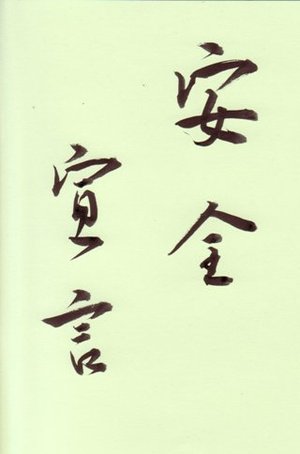 安全
宣言